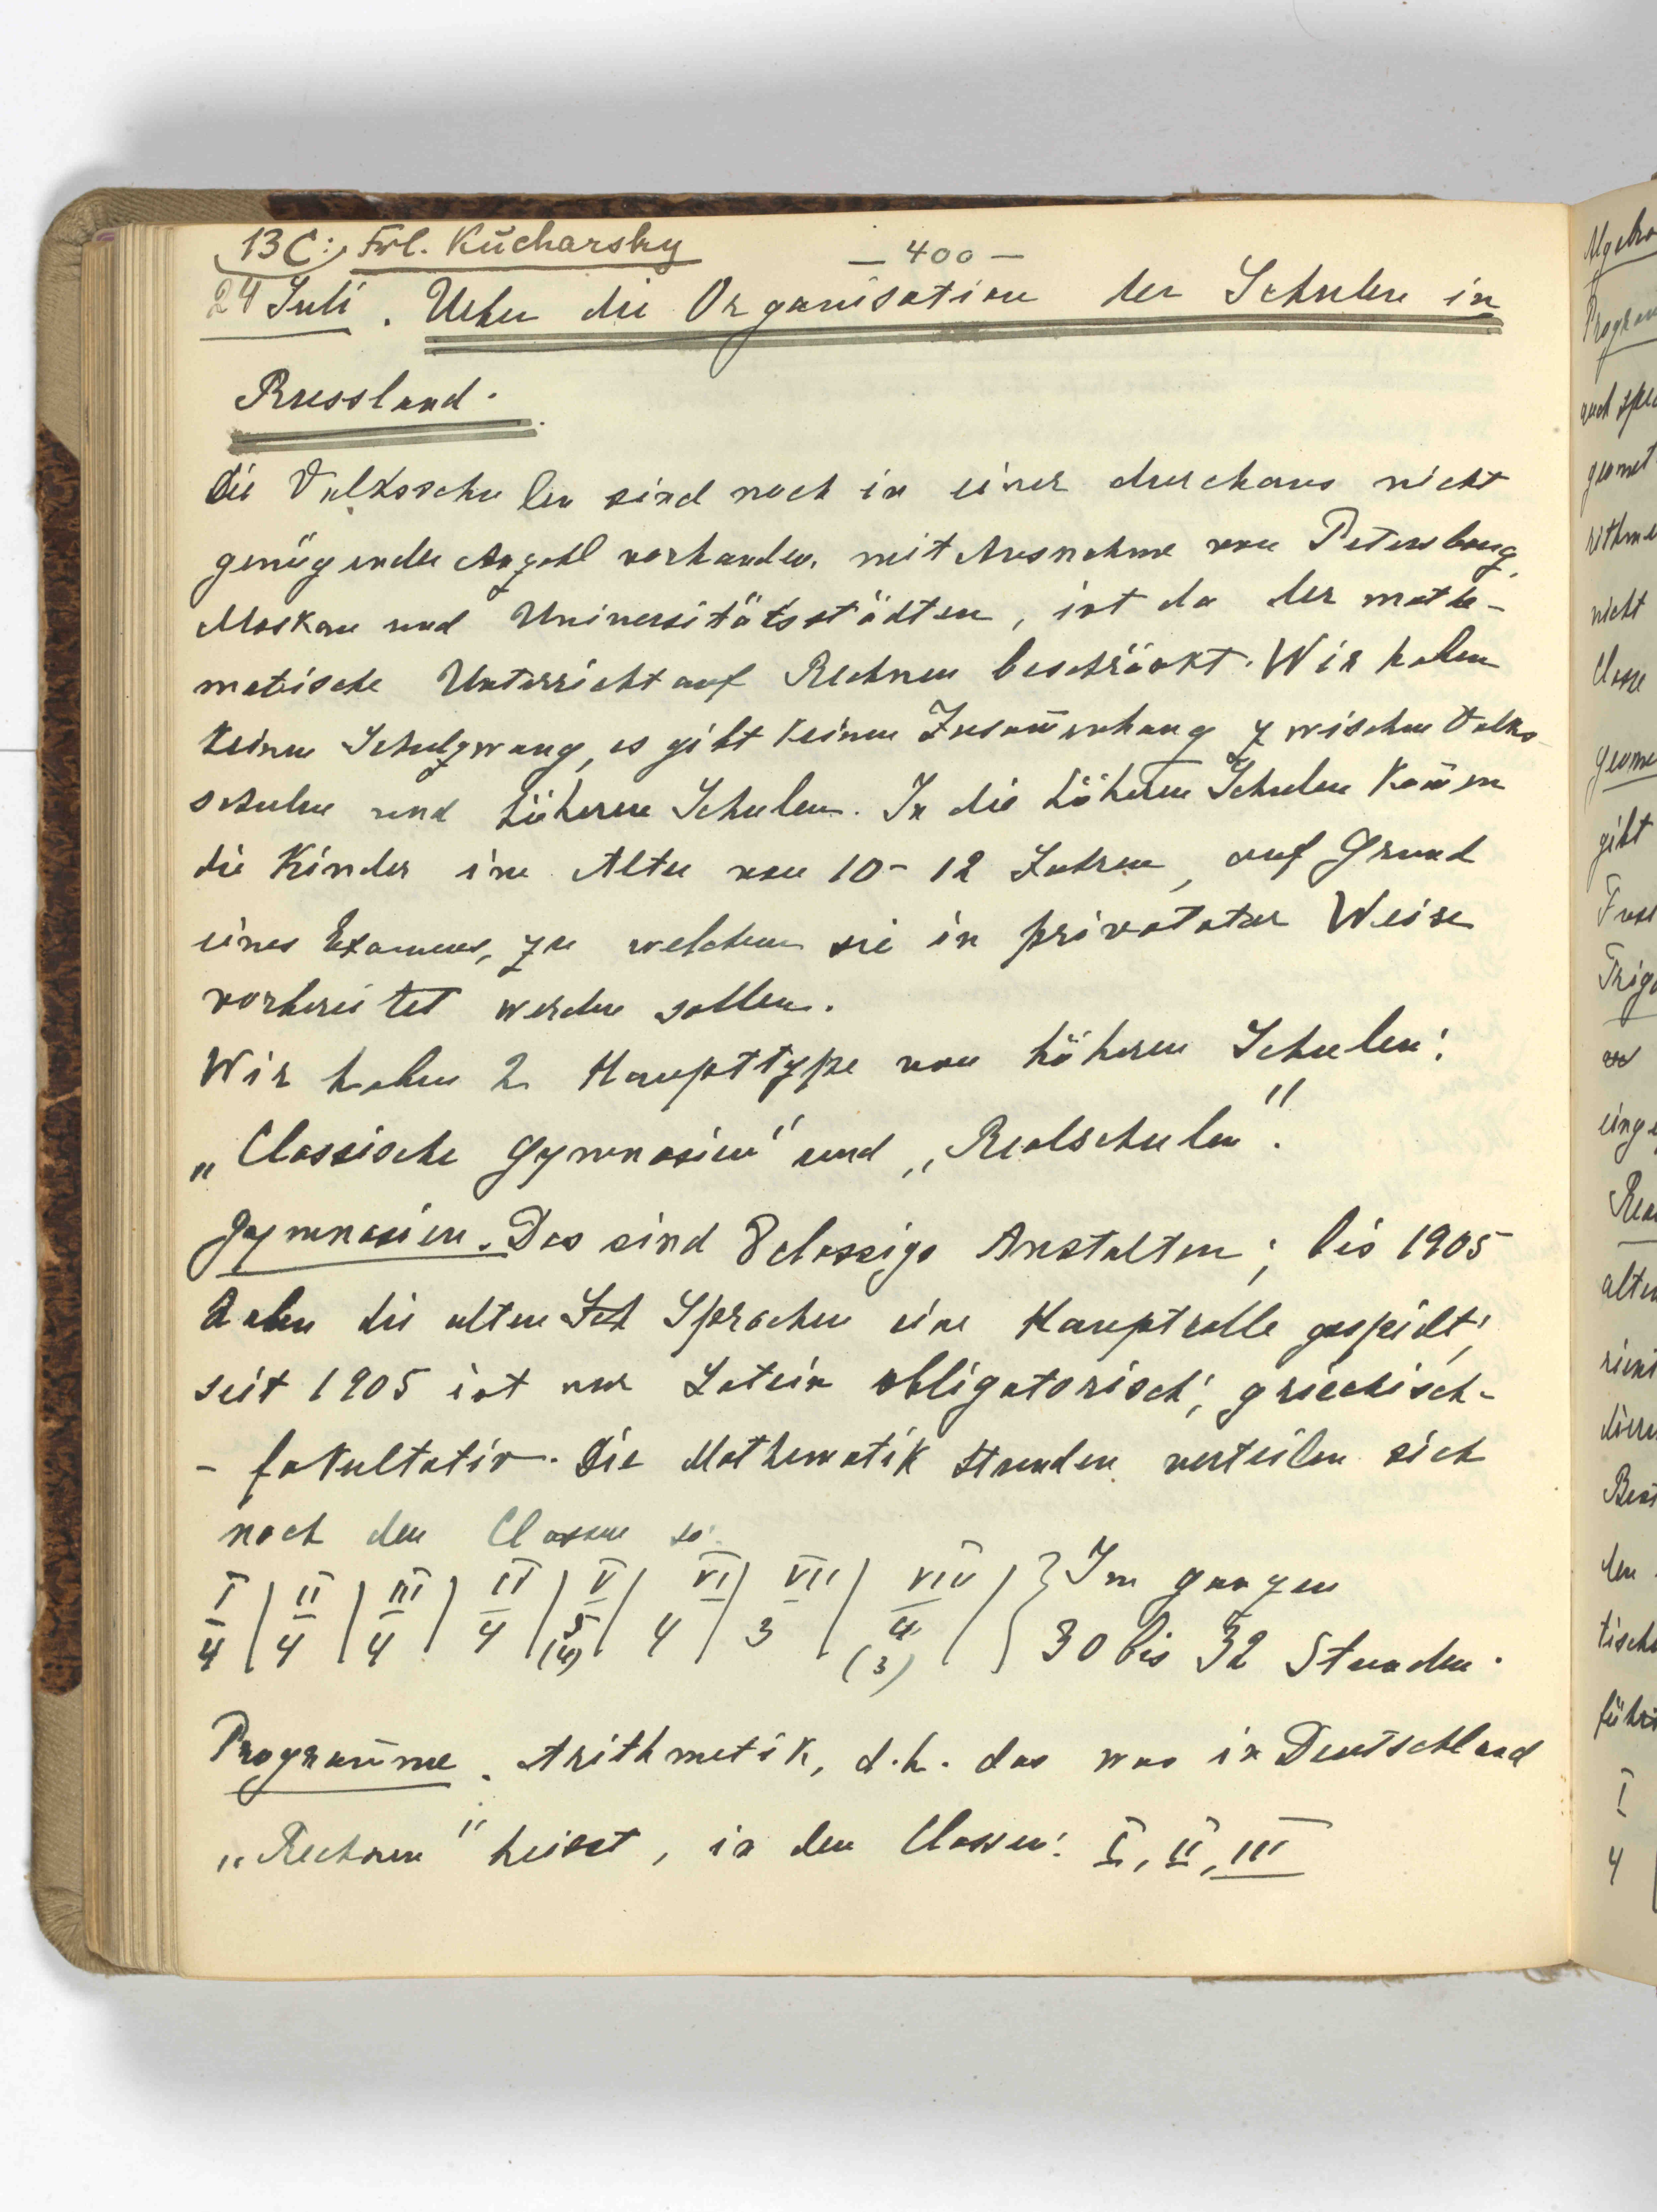 13C: Frl. Kucharsky
— 400 —
24 Juli. Ueber die Organisation der Schulen in
Russland.
Die Volksschulen sind noch in einer durchaus nicht
genügender Anzahl vorhanden. mit Ausnahme von Petersburg,
Moskau und Universitätsstädten, ist da der mathe-
matische Unterricht auf Rechnen beschränkt. Wir haben
keinen Schulzwang, es gibt keinen Zusam̄enhang zwischen Volks-
schulen und höheren Schulen. In die höheren Schulen kom̄en
die Kinder im Alter von 10-12 Jahren, auf Grund
eines Examens, zu welchem sie in privatater Weise
vorbereitet werden sollen.
Wir haben 2 Haupttype von höheren Schulen:
„Classische Gymnasien" und „Realschulen".
Gymnasien. Das sind 8classige Anstalten; bis 1905
haben die alten Sprachen eine Hauptrolle gespielt;
seit 1905 ist nur Latein obligatorisch; griechisch-
- fakultativ. Die Mathematik Stunden verteilen sich
nach den Classen so:
I | II | III | IV | V | VI | VII | VIII | } Im ganzen
4 | 4 | 4 | 4 | 5 | 4 | 3 | 4 | } 30 bis 32 Stunden.
(4) (3)
Program̄e. Arithmetik, d.h. das was in Deutschland
„Rechnen" heisst, in den Classen: I, II, III
Algebra
Program
auch spe
geomet
rithme
nicht
Classe
geome
gibt
Trigo
einge
Rea
alten
führ
I
4